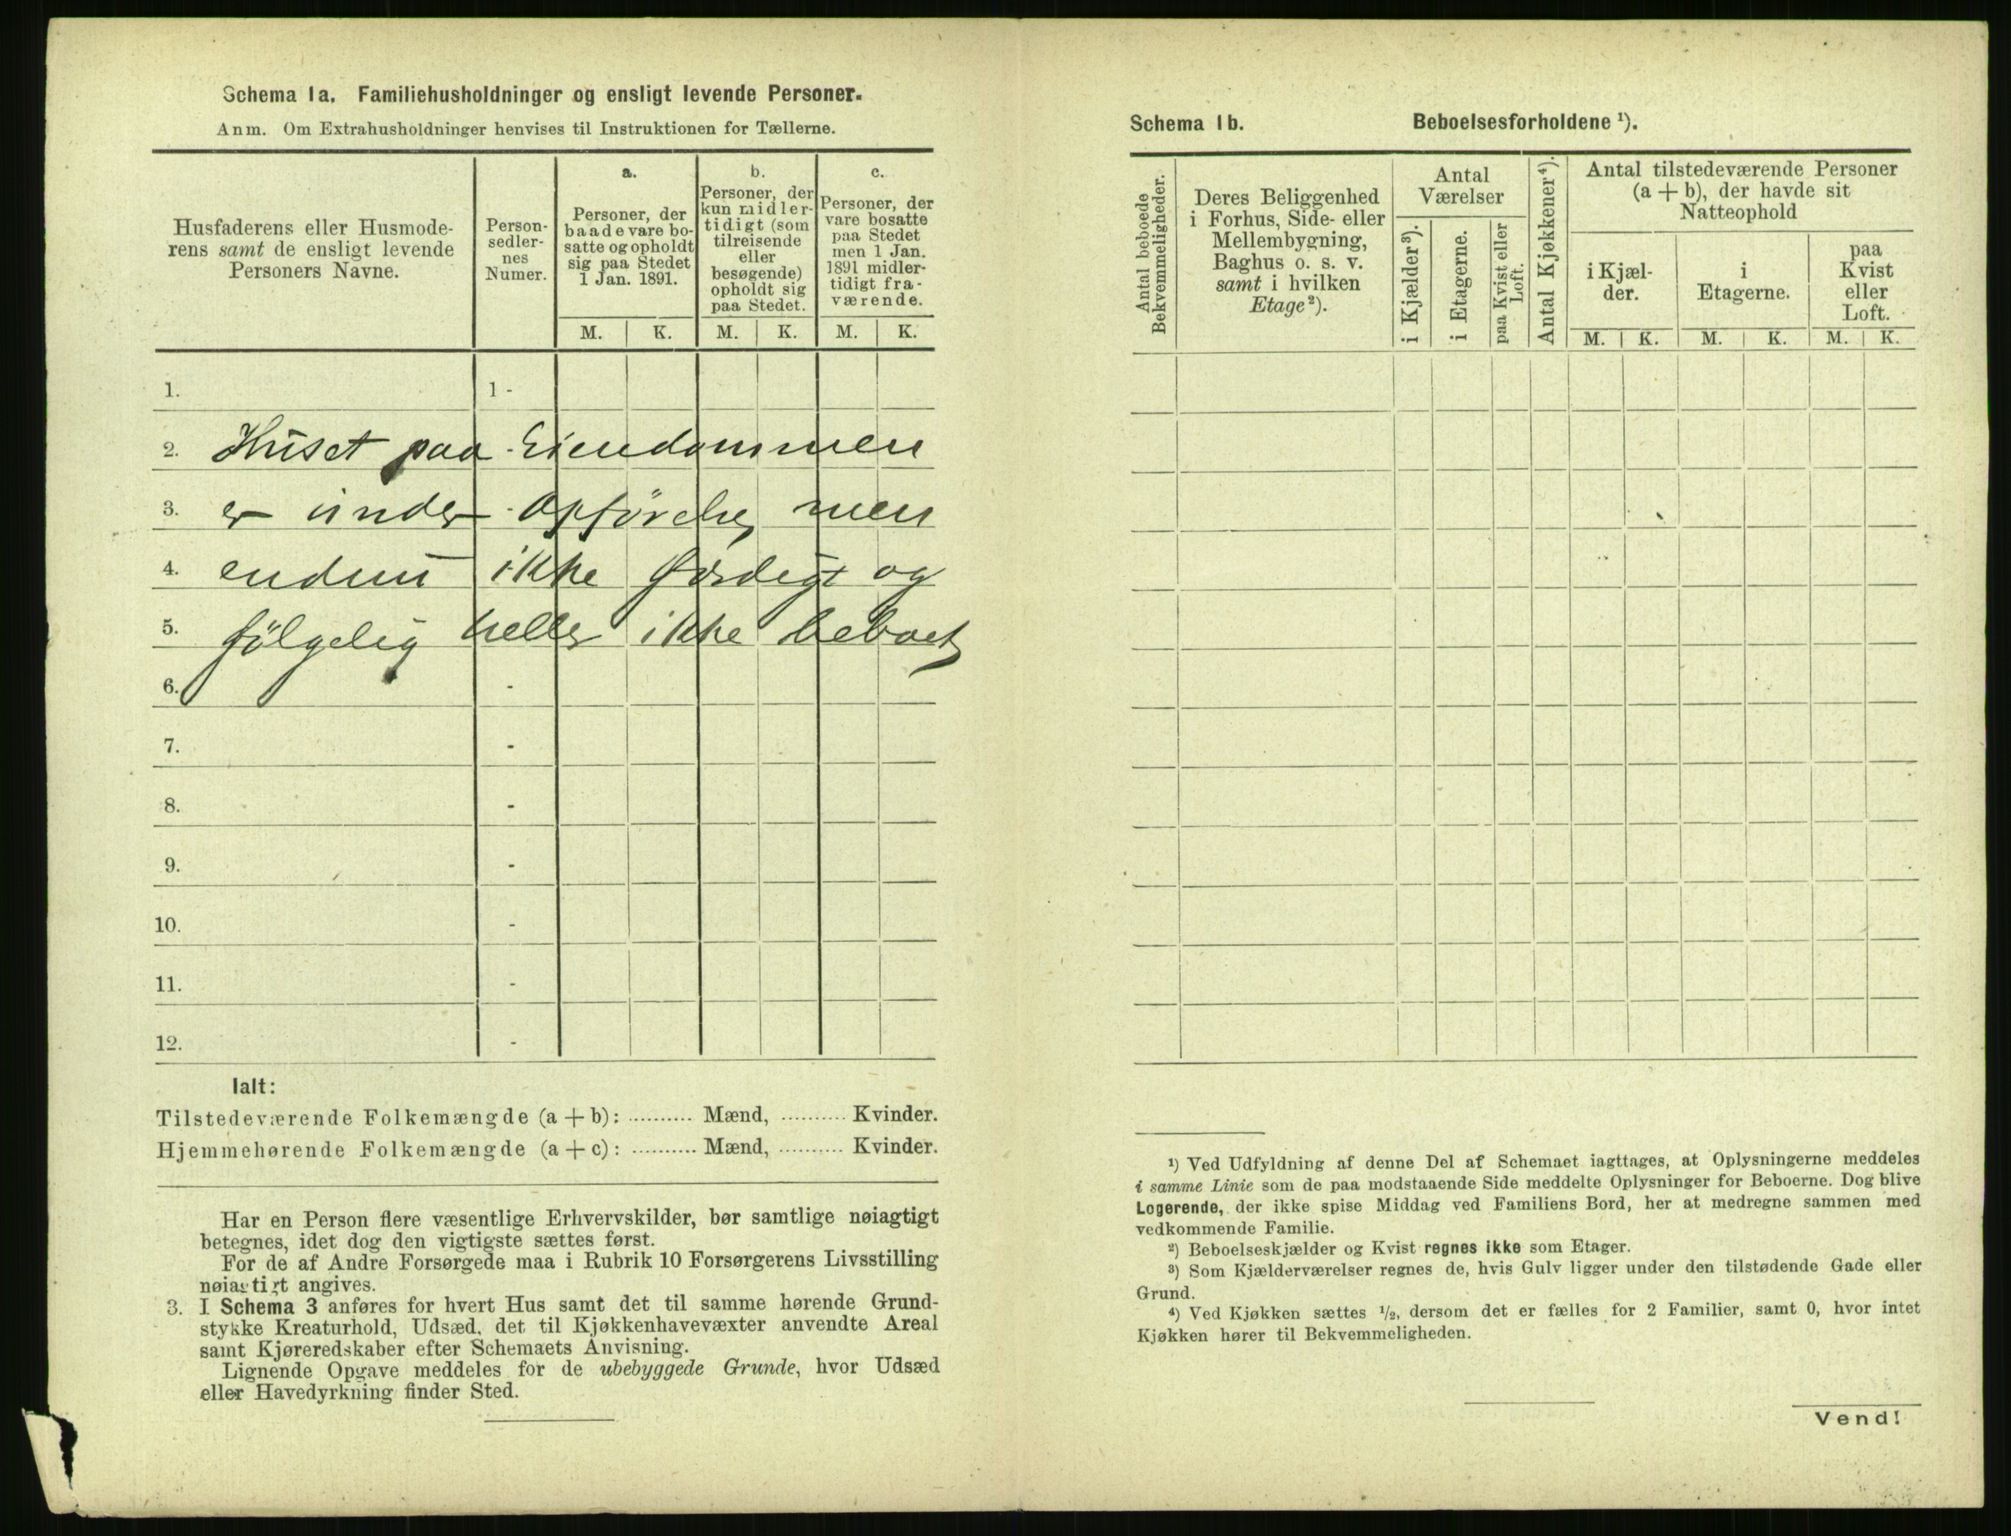 Schema 1a. Familiehusholdninger og ensligt levende Personer.
Anm. Om Extrahusholdninger henvises til Instruktionen for Tællerne.
Husfaderens eller Husmode-
rens samt de ensligt levende
Personers Navne.
Person-
sedler-
nes
Numer.
a.
Personer, der
baade vare bo-
satte og opholdt
sig paa Stedet
1 Jan. 1891.
b.
Personer, der
kun midler-
tidigt (som
tilreisende
eller
besøgende)
opholdt sig
paa Stedet.
c.
Personer, der
vare bosatte
paa Stedet
men 1 Jan.
1891 midler-
tidigt fra-
værende.
M. K. M. K. M. K.
1. 1 -
2. Huset paa Eiendommen
3. er under Opførelse, men
4. endnu ikke færdigt og
5. følgelig heller ikke beboet
6. -
7. -
8. -
9. -
10. -
11. -
12. -
Ialt:
Tilstedeværende Folkemængde (a + b): .......... Mænd, .......... Kvinder.
Hjemmehørende Folkemængde (a + c): .......... Mænd, .......... Kvinder.
Har en Person flere væsentlige Erhvervskilder, bør samtlige nøiagtigt
betegnes, idet dog den vigtigste sættes først.
For de af Andre Forsørgede maa i Rubrik 10 Forsørgerens Livsstilling
nøiagtigt angives.
3. I Schema 3 anføres for hvert Hus samt det til samme hørende Grund-
stykke Kreaturhold, Udsæd, det til Kjøkkenhavevæxter anvendte Areal
samt Kjøreredskaber efter Schemaets Anvisning.
Lignende Opgave meddeles for de ubebyggede Grunde, hvor Udsæd
eller Havedyrkning finder Sted.
Schema 1b. Beboelsesforholdene ¹).
Antal beboede
Bekvemmeligheder.
Deres Beliggenhed
i Forhus, Side- eller
Mellembygning,
Baghus o. s. v.
samt i hvilken
Etage²).
Antal
Værelser
i Kjælder³).
i Etagerne.
paa Kvist eller
Loft.
Antal Kjøkkener⁴).
Antal tilstedeværende Personer
(a + b), der havde sit
Natteophold
i Kjæl-
der.
i
Etagerne.
paa
Kvist
eller
Loft.
M. K. M. K. M. K.
¹) Ved Udfyldning af denne Del af Schemaet iagttages, at Oplysningerne meddeles
i samme Linie som de paa modstaaende Side meddelte Oplysninger for Beboerne. Dog blive
Logerende, der ikke spise Middag ved Familiens Bord, her at medregne sammen med
vedkommende Familie.
²) Beboelseskjælder og Kvist regnes ikke som Etager.
³) Som Kjælderværelser regnes de, hvis Gulv ligger under den tilstødende Gade eller
Grund.
⁴) Ved Kjøkken sættes ¹/₂, dersom det er fælles for 2 Familier, samt 0, hvor intet
Kjøkken hører til Bekvemmeligheden.
Vend!